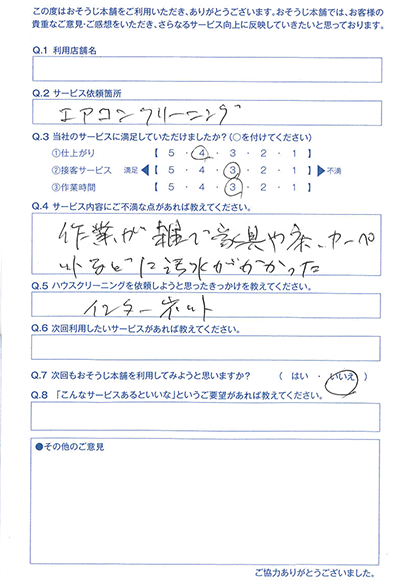 この度はおそうじ本舗をご利用いただき、ありがとうございます。おそうじ本舗では、お客様の
貴重なご意見・ご感想をいただき、さらなるサービス向上に反映していきたいと思っております。
Q.1 利用店舗名
Q.2 サービス依頼箇所
エアコンクリーニング
Q.3 当社のサービスに満足していただけましたか?(○を付けてください)
①仕上がり 【 5 ・ 4 ・ 3 ・ 2 ・ 1 】
②接客サービス 満足 ◀【 5 ・ 4 ・ 3 ・ 2 ・ 1 】▶ 不満
③作業時間 【 5 ・ 4 ・ 3 ・ 2 ・ 1 】
Q.4 サービス内容にご不満な点があれば教えてください。
作業が雑で家具や床、カーペ
ットなどに汚水がかかった
Q.5 ハウスクリーニングを依頼しようと思ったきっかけを教えてください。
インターネット
Q.6 次回利用したいサービスがあれば教えてください。
Q.7 次回もおそうじ本舗を利用してみようと思いますか? ( はい ・ いいえ )
Q.8 「こんなサービスあるといいな」というご要望があれば教えてください。
●その他のご意見
ご協力ありがとうございました。